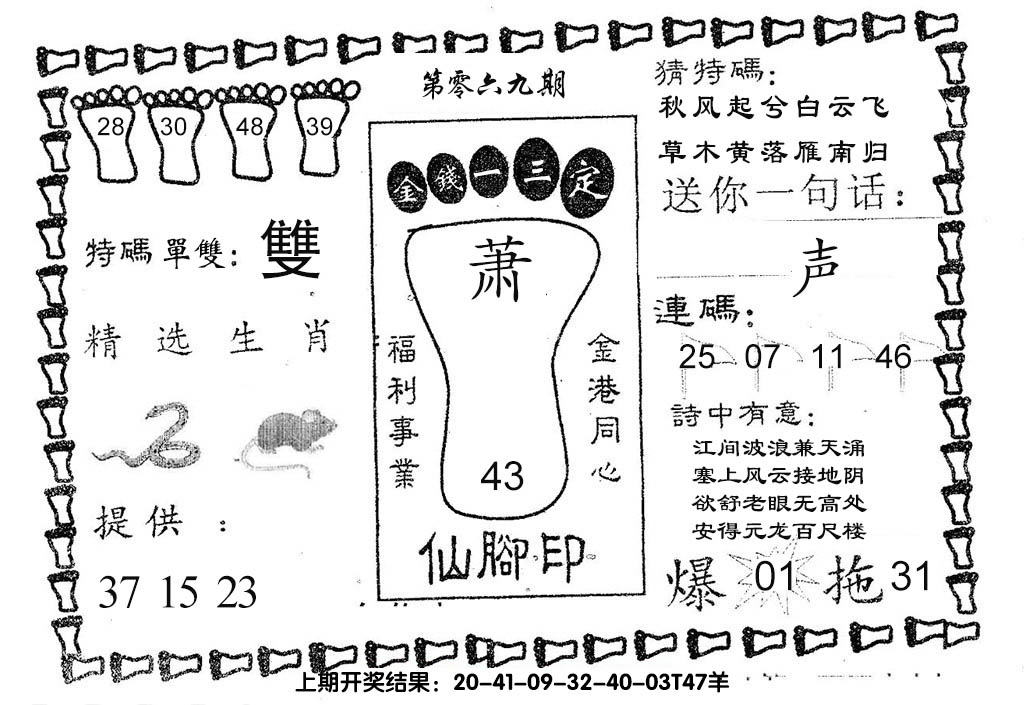 第零六九期
28 30 48 39
特碼單雙：雙
精选生肖
提供：
37 15 23
金錢一三定
萧
福利事業
金港同心
43
仙腳印
猜特碼：
秋风起兮白云飞
草木黄落雁南归
送你一句话：
声
連碼：
25 07 11 46
詩中有意：
江间波浪兼天涌
塞上风云接地阴
欲舒老眼无高处
安得元龙百尺楼
爆 01 拖 31
上期开奖结果：20-41-09-32-40-03T47羊